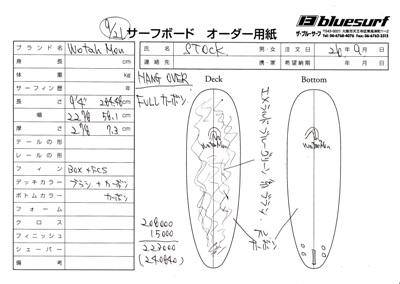 9/21
サーフボード オーダー用紙
bluesurf
ザ・ブルーサーフ
ブランド名 Wotah Mon
氏名 STOCK 男・女 注文日 26年9月 日
連絡先 携・家 希望納期 年 月 日
身長 cm
体重 kg
サーフィン歴 年
長さ 9'4" 284.48cm
幅 22 7/8 58.1 cm
厚さ 2 7/8 7.3 cm
テールの形
レールの形
フィン Box+FCS
デッキカラー ブラン+カーボン
ボトムカラー カーボン
フォーム
クロス
フィニッシュ
シェーパー
備考
HANG OVER
FULLカーボン
208000
15000
223000
(240840)
Deck
Bottom
Wotah Mon
エメラルドブルーグリーン
カーボン